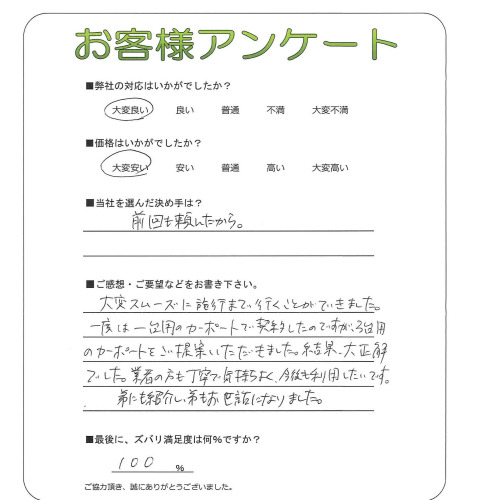 お客様アンケート
■弊社の対応はいかがでしたか？
大変良い 良い 普通 不満 大変不満
■価格はいかがでしたか？
大変安い 安い 普通 高い 大変高い
■当社を選んだ決め手は？
前回も頼んだから。
■ご感想・ご要望などをお書き下さい。
大変スムーズに施行まで行くことができました。
一度は一台用のカーポートで契約したのですが、3台用
のカーポートをご提案いただきました。結果、大正解
でした。業者の方も丁寧で気持ちよく、今後も利用したいです。
弟にも紹介し、弟もお世話になりました。
■最後に、ズバリ満足度は何%ですか？
100 %
ご協力頂き、誠にありがとうございました。